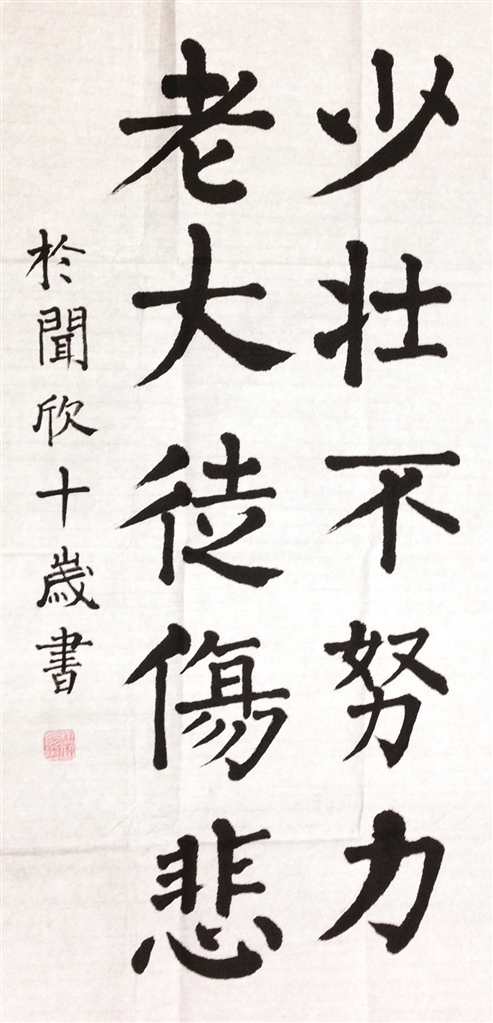 少壮不努力
老大徒傷悲
於聞欣十歲書